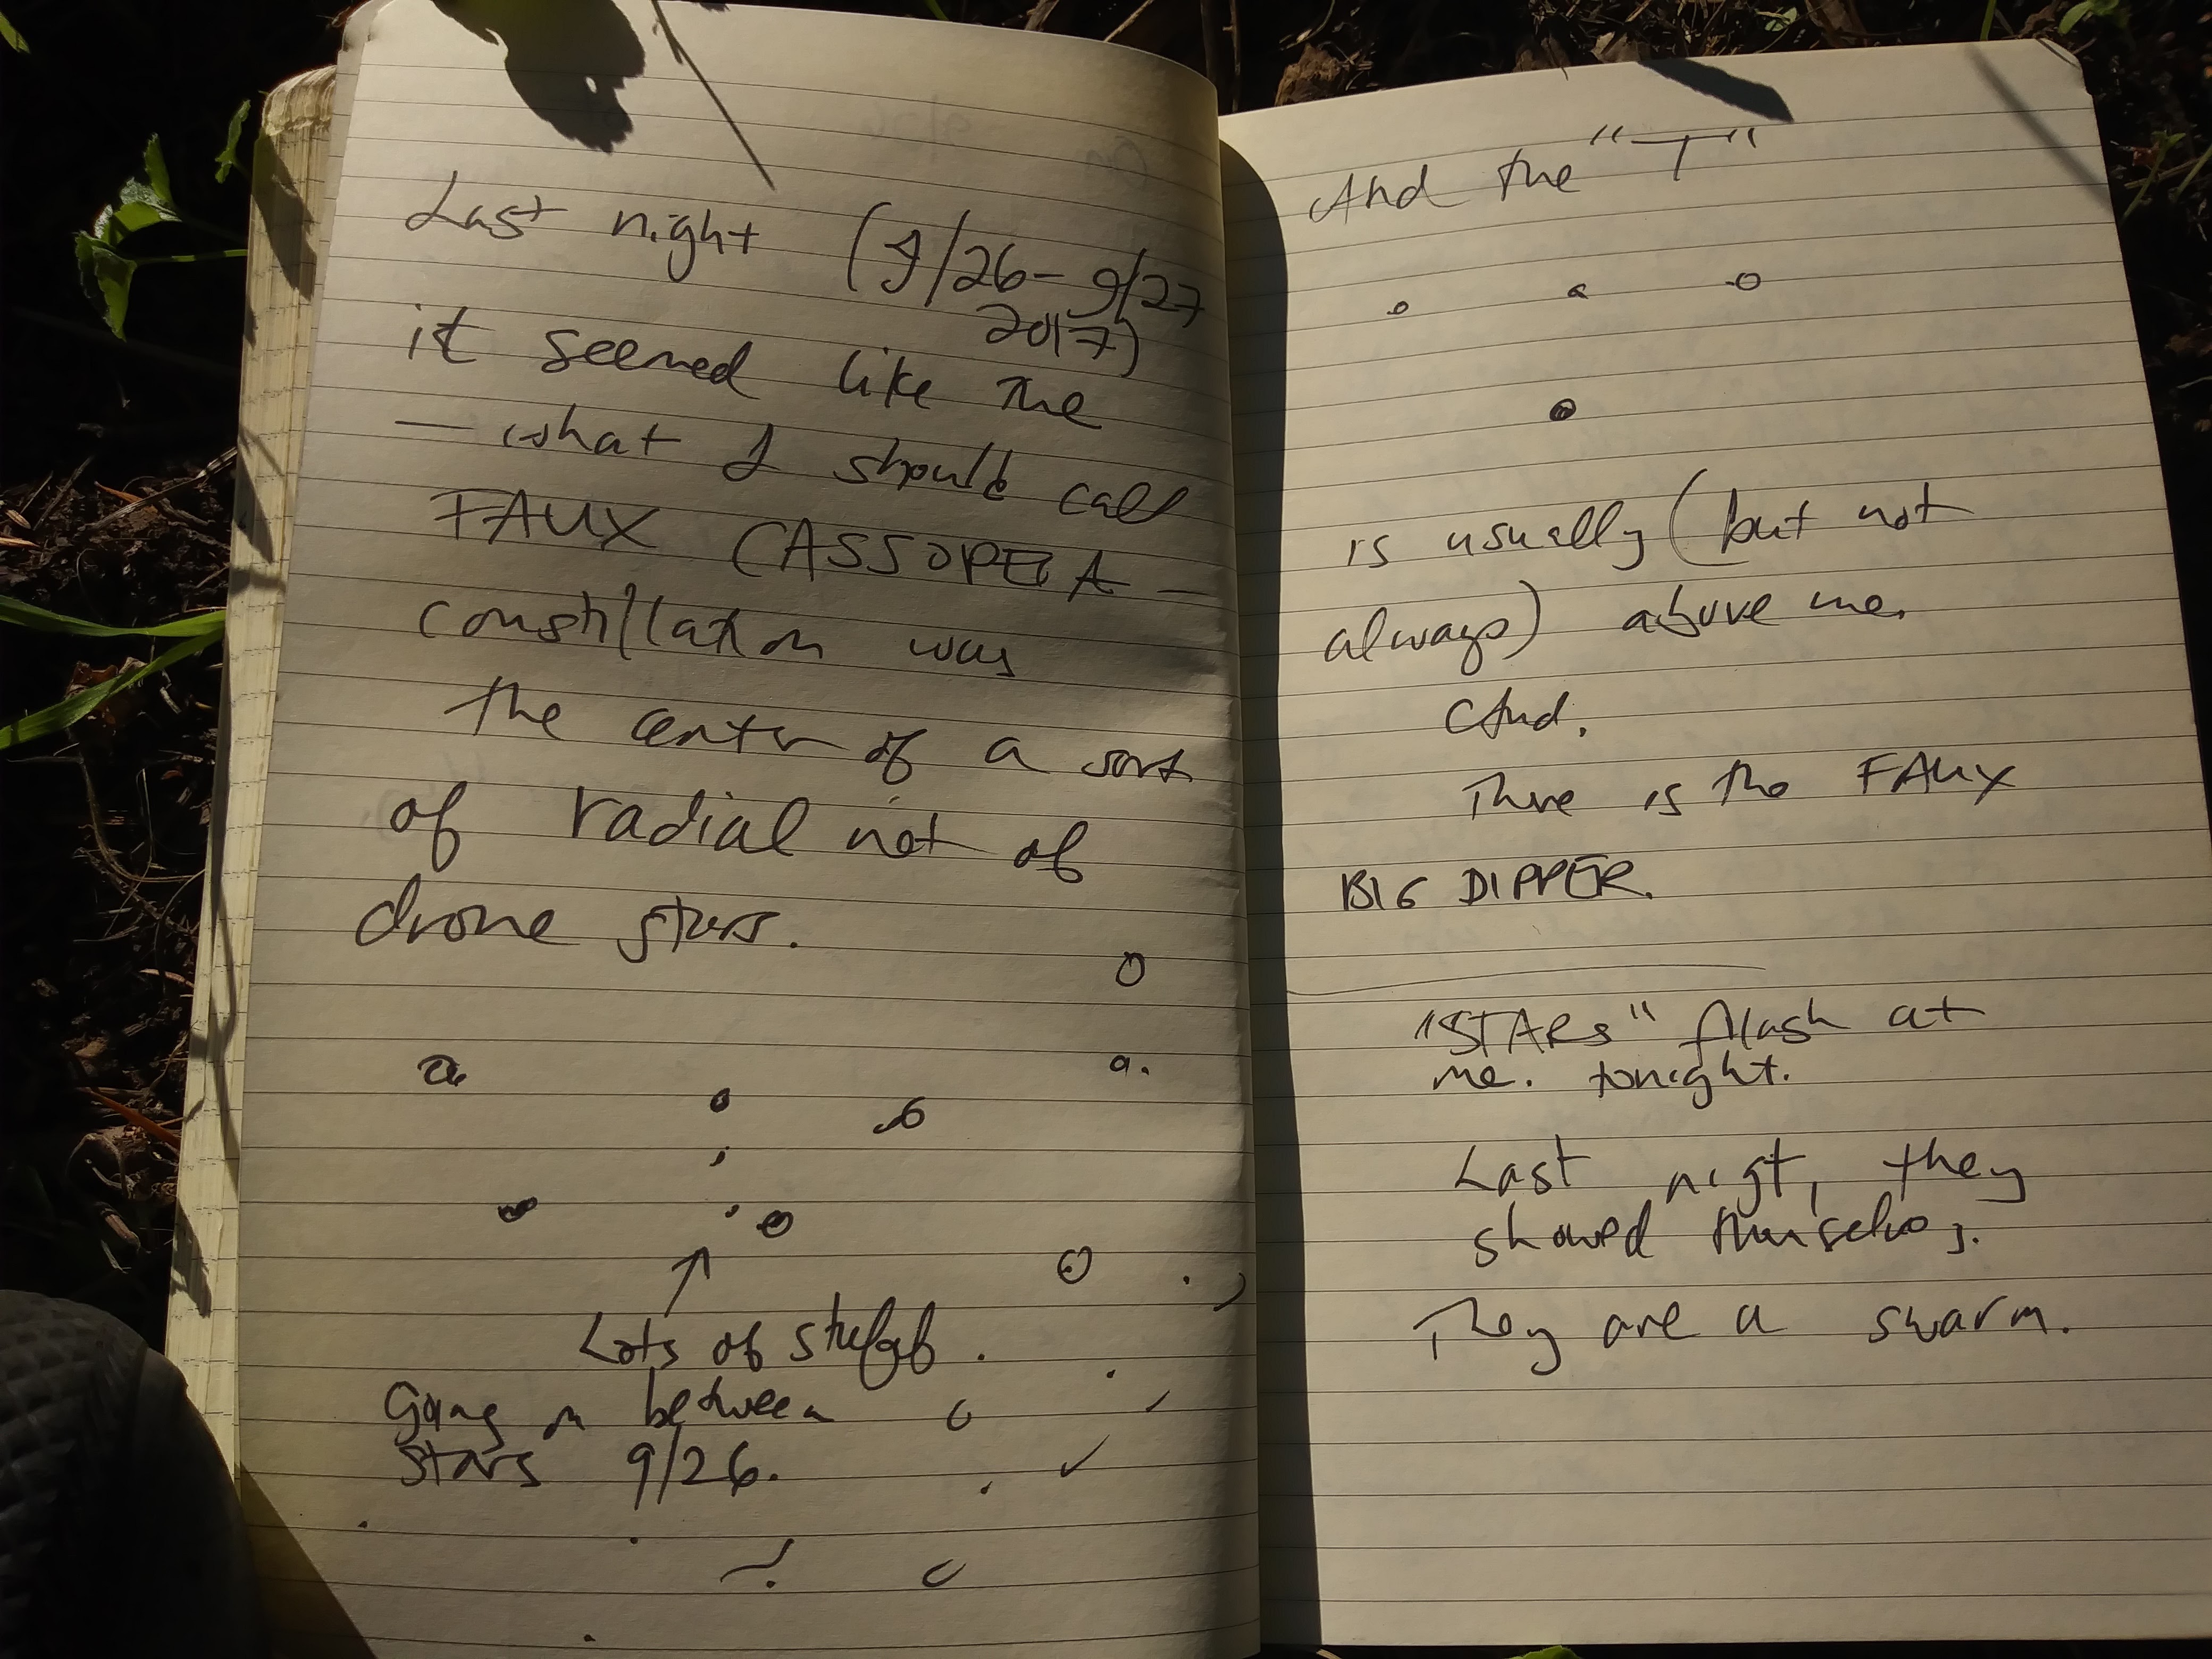 Last night (9/26-9/27
2017)
it seemed like the
— what I should call
FAUX CASSOPEIA —
constillation was
the center of a sort
of radial net of
drone stars.
Lots of stuff.
Going on between
stars 9/26.
And the "T"
is usually (but not
always) above me.
And.
There is the FAUX
BIG DIPPER.
"STARS" flash at
me. tonight.
Last nigt, they
showed themselves.
They are a swarm.